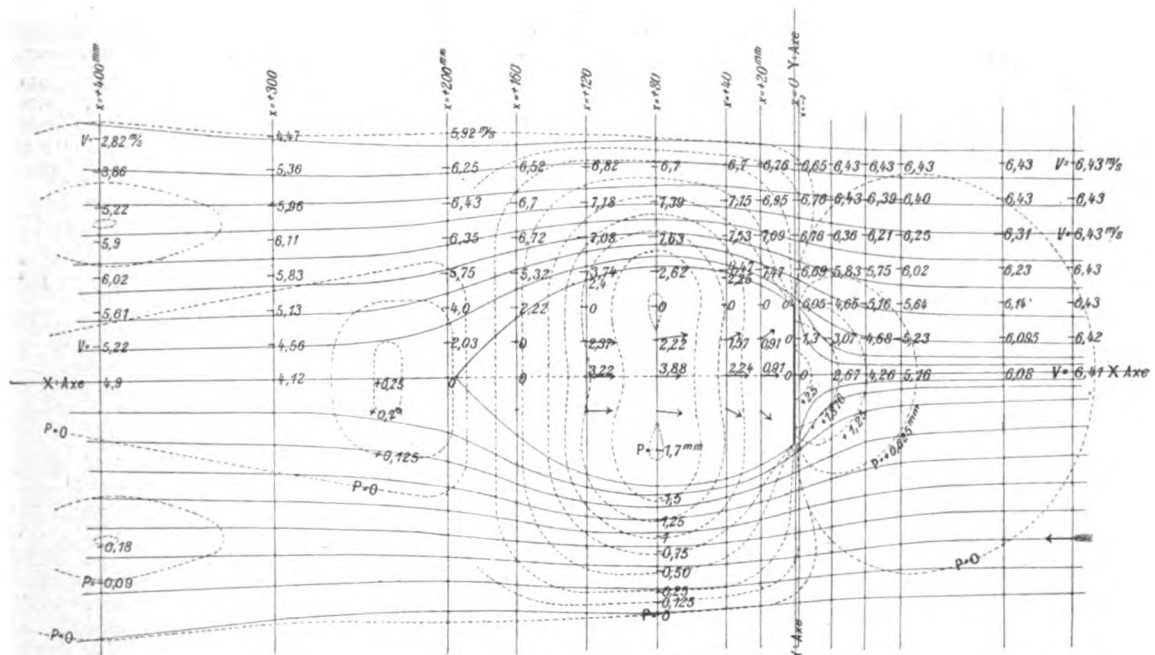 x=+400mm x=+300 x=+200mm x=+160 x=+120 x=+80 x=+40 x=+20mm x=0 Y-Axe
V= 2,82 m/s 4,47 5,92 m/s
3,86 5,36 6,25 6,52 6,82 6,7 6,7 6,76 6,65 6,43 6,43 6,43 6,43 V= 6,43 m/s
5,22 5,96 6,43 6,7 7,18 7,39 7,15 6,95 6,76 6,43 6,39 6,40 6,43 6,43
5,9 6,11 6,35 6,72 7,08 7,63 7,53 7,09 6,76 6,36 6,21 6,25 6,31 V= 6,43 m/s
6,02 5,83 5,75 5,32 3,74 2,62 7,47 6,69 5,83 5,75 6,02 6,23 6,43
2,4 2,26
5,61 5,13 4,0 2,22 0 0 0 0 0 6,05 4,65 5,16 5,64 6,14 6,43
V= 5,22 4,56 2,03 0 2,37 2,22 1,97 0,91 0 1,3 3,07 4,68 5,23 6,095 6,42
X-Axe 4,9 4,12 0 0 3,22 3,88 2,24 0,91 0 0 2,67 4,26 5,16 6,08 V= 6,41 X Axe
+0,25
+0,2
+0,125
P=0
P=0
P= -1,7mm
+2,5
+1,876
+1,25
P=+0,625mm
-1,5
-1,25
-1
-0,75
-0,50
-0,25
-0,125
P=0
-0,18
P=-0,09
P=0
P=0
Y-Axe